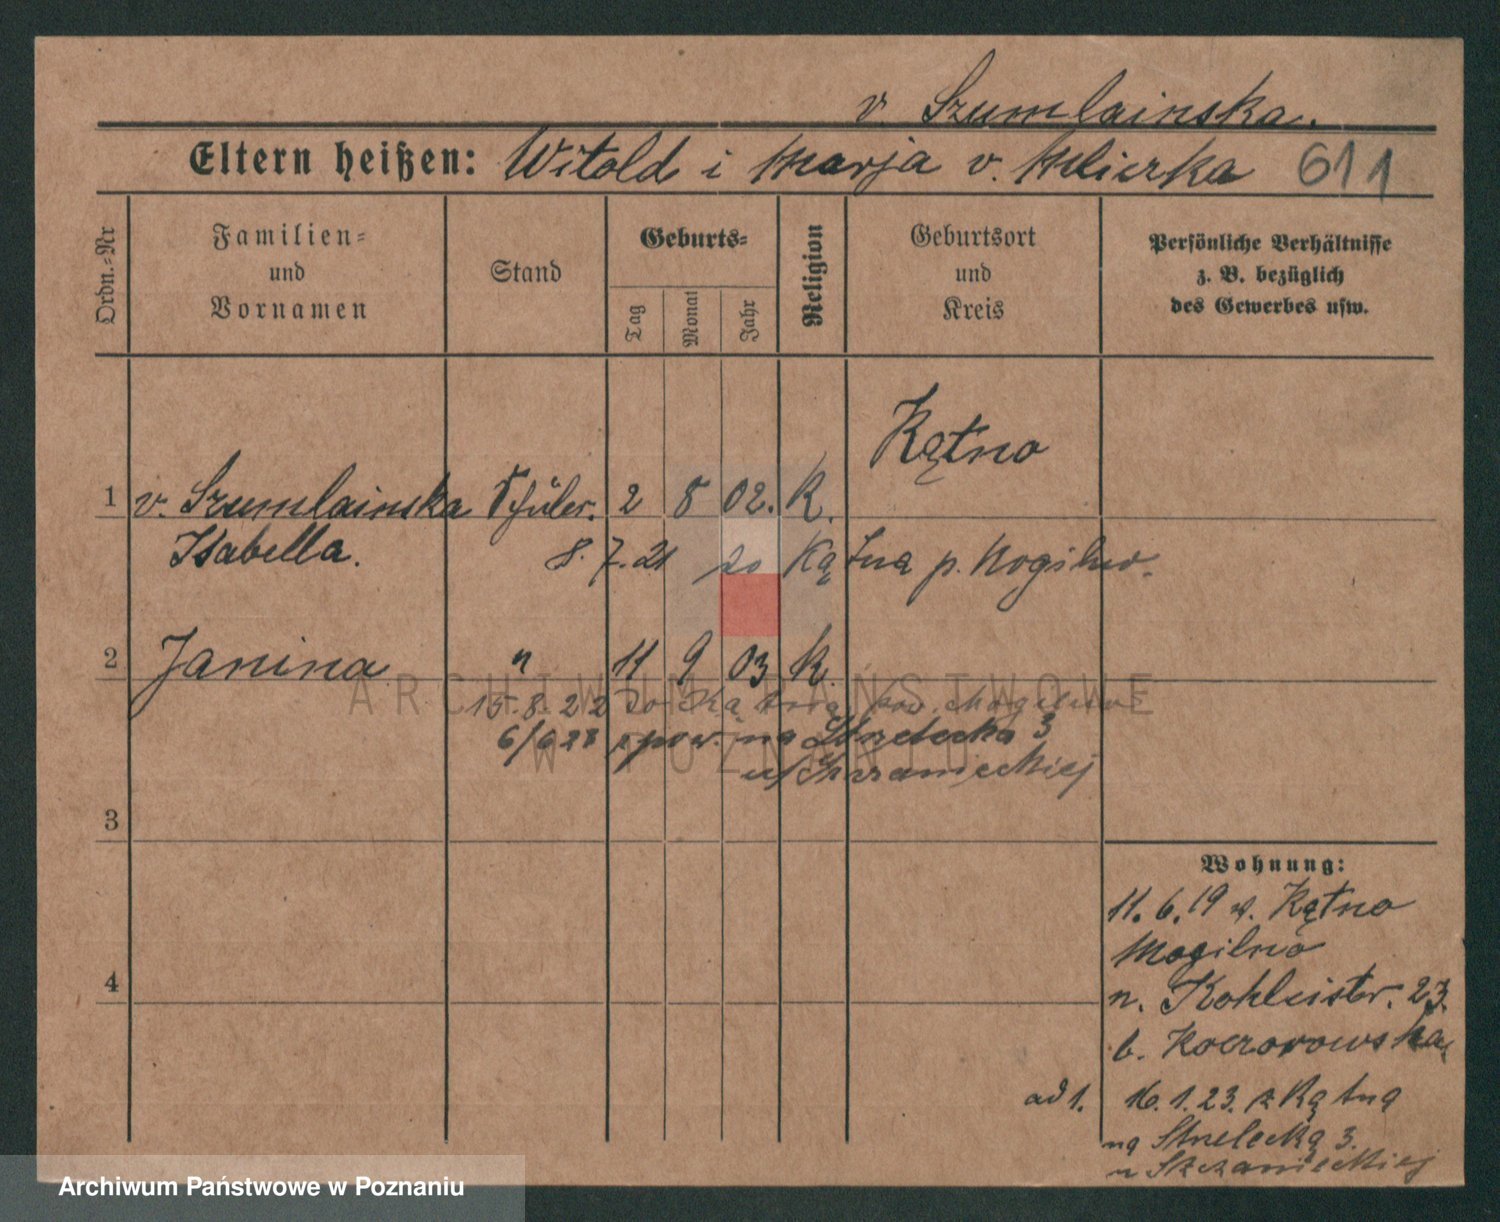 v. Szumlainska.
Eltern heißen: Witold i Marja v. Mlicka 611
Ordn.-Nr
Familien-
und
Vornamen
Stand
Geburts-
Tag
Monat
Jahr
Religion
Geburtsort
und
Kreis
Persönliche Verhältnisse
z. B. bezüglich
des Gewerbes usw.
Kątno
1 v. Szumlainska Schüler. 2 8 02. K.
Isabella.
8. 7. 21 do Kątna p. Mogilno.
2 Janina " 11 9 03 K.
15.8.22 do Kątna pow. Mogilno
6/6 23 spow. na Strzelecka 3
u/Skrzanieckiej
3
4
Wohnung:
11. 6. 19 v. Kątno
Mogilno
n. Kohleistr. 23.
b. Koczorowska
ad 1. 16. 1. 23. z Kątna
na Strzelecką 3.
ARCHIWUM PAŃSTWOWE
W POZNANIU
Archiwum Państwowe w Poznaniu